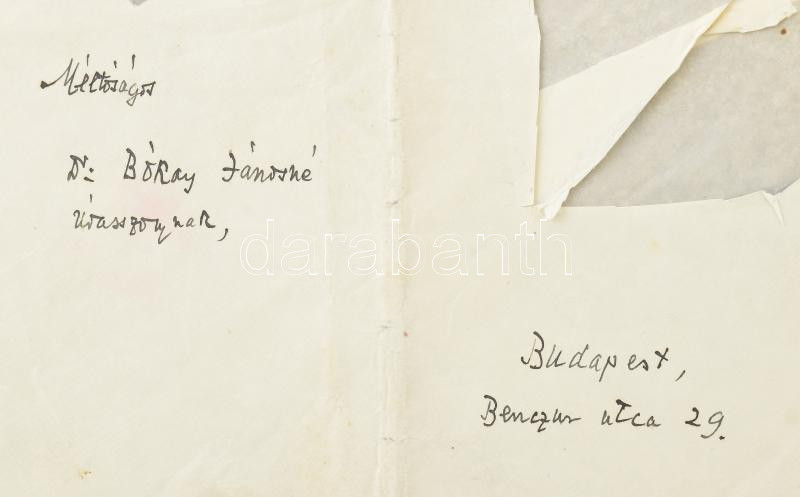 Méltóságos
Dr: Bókay Jánosné
Úrasszonynak,
darabanth
Budapest,
Benczur utca 29.